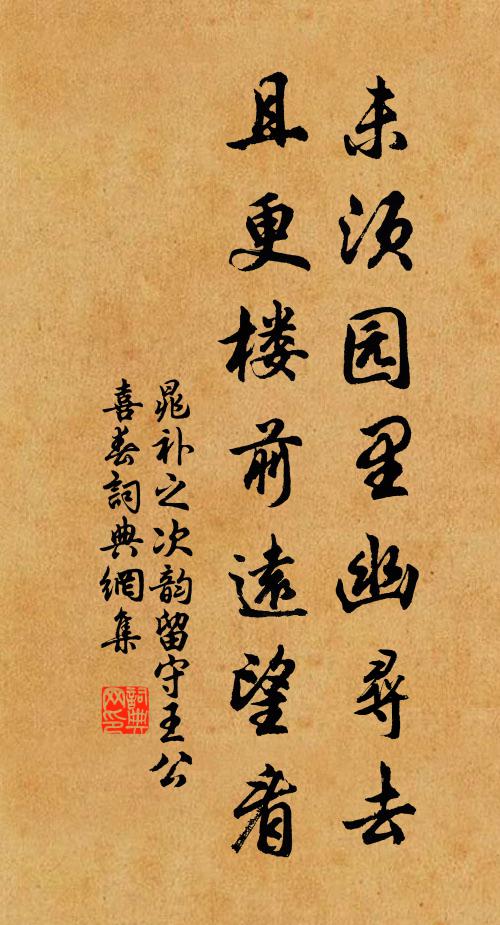 未须园里幽尋去
且更楼前遠望看
晁补之次韵留守王公
喜春詞典網集
詞典网印